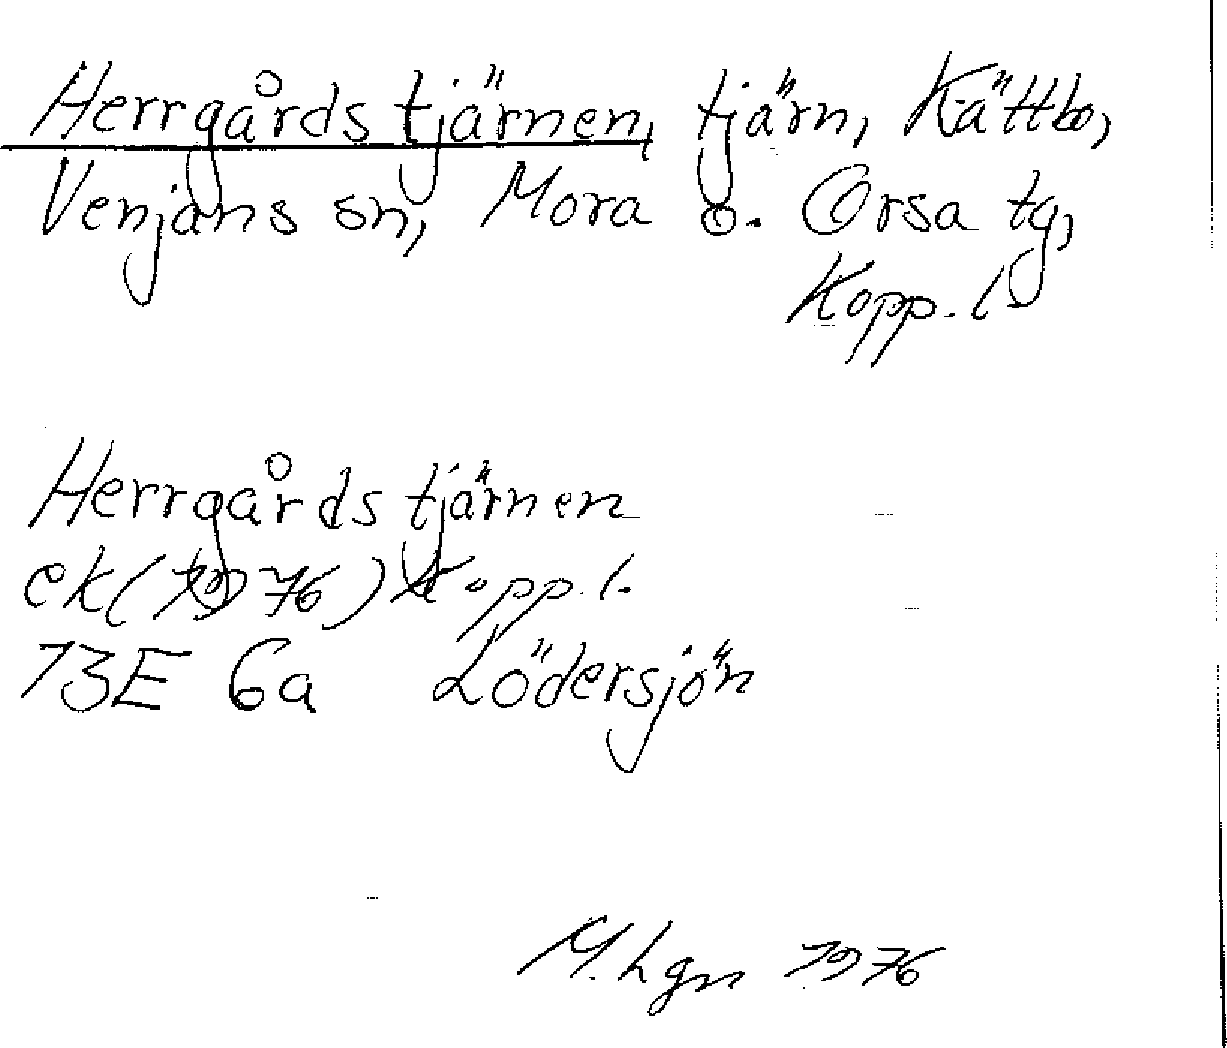 Herrgårdstjärnen, tjärn, Kättbo,
Venjans sn, Mora o. Orsa tg,
Kopp. l.
Herrgårdstjärnen
ek (1976) Kopp. l.
13E 6a Lödersjön
M. Lgn 1976